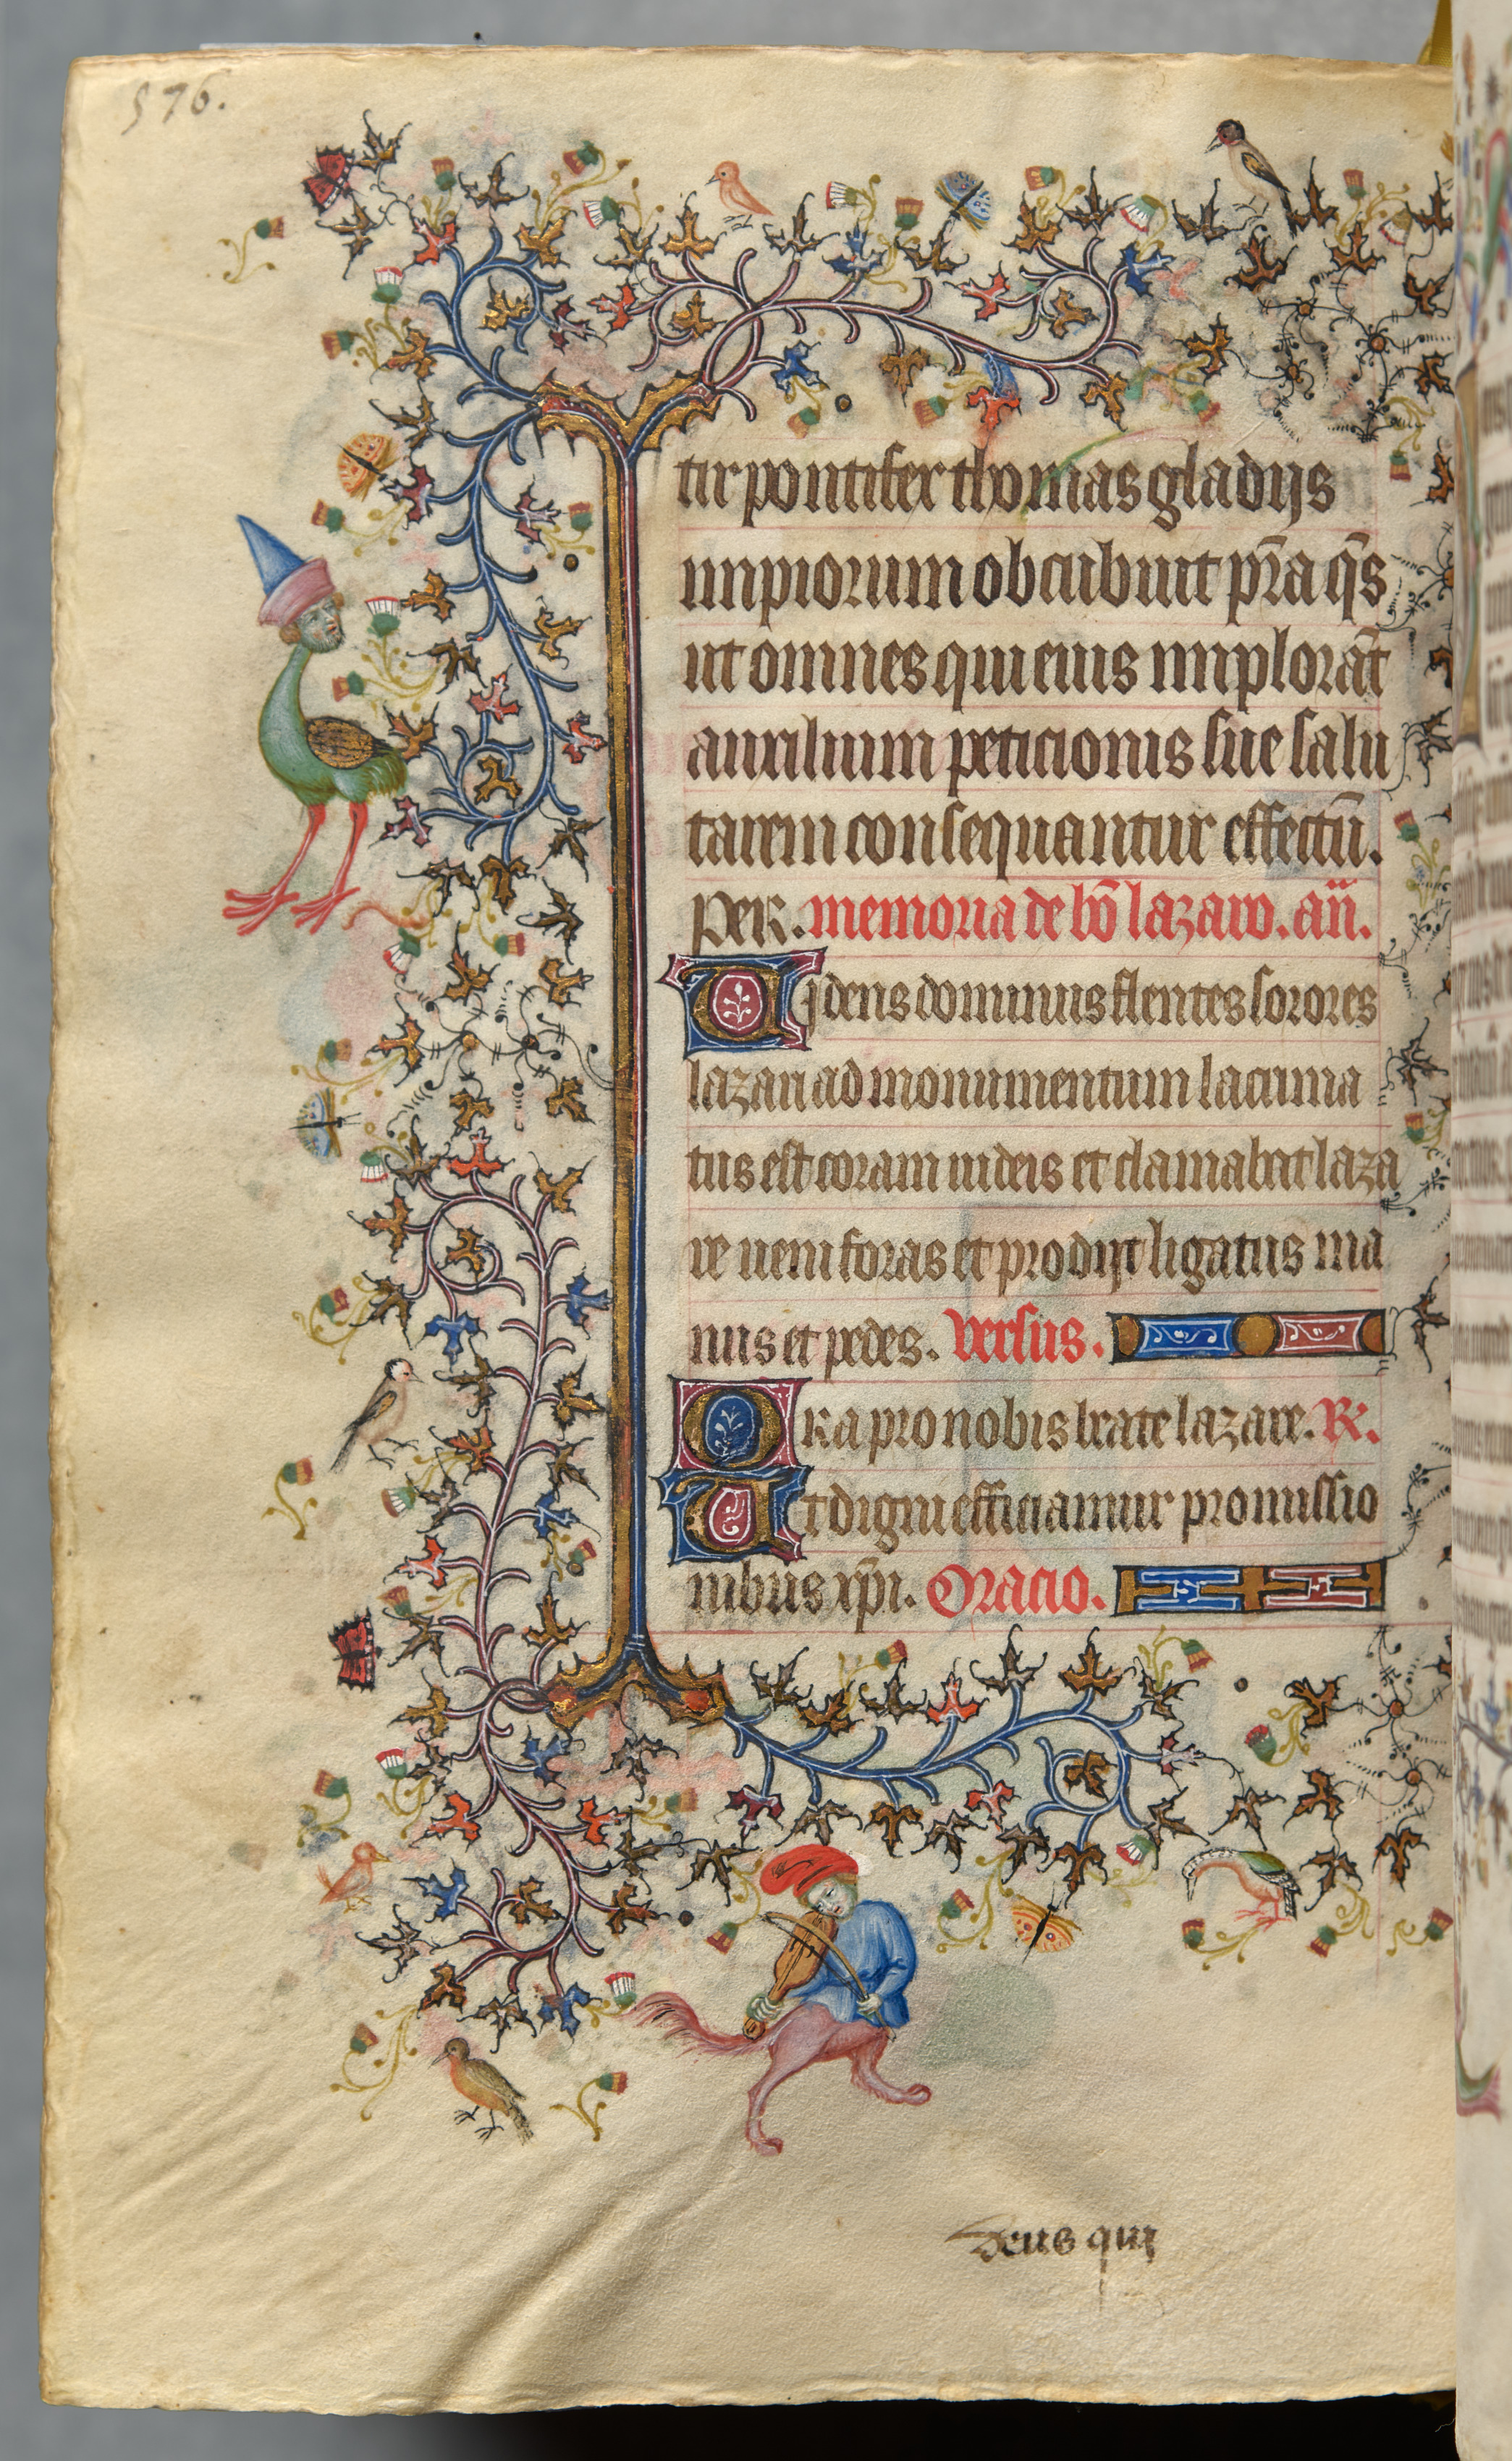 576.
tir pontifex thomas gladijs
impiorum obcubuit pr̄a q̄s
ut omnes qui eius implorāt
auxilium peticionis sue salu
tarem consequantur effectū.
Per. memoria de bō lazaro. añ.
Uidens dominus flentes sorores
lazari ad monumentum lacrima
tus est coram iudeis et clamabat laza
re ueni foras et prodijt ligatus ma
nus et pedes. Versus.
Ora pro nobis beate lazare. R.
Ut digni efficiamur promissio
nibus xp̄i. Oracio.
Deus qui